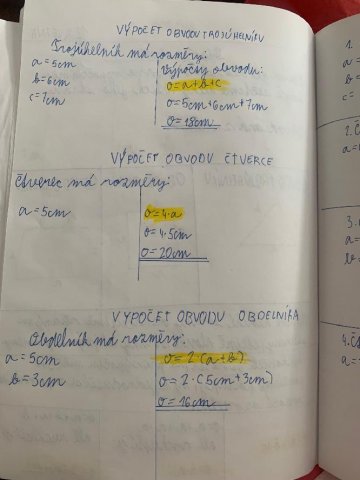 VÝPOČET OBVODU TROJÚHELNÍKU
Trojúhelník má rozměry:
a = 5cm
b = 6cm
c = 7cm
Výpočty obvodu:
o = a+b+c
o = 5cm+6cm+7cm
o = 18cm
VÝPOČET OBVODU ČTVERCE
Čtverec má rozměry:
a = 5cm
o = 4·a
o = 4·5cm
o = 20cm
VÝPOČET OBVODU OBDELNÍKA
Obdelník má rozměry:
a = 5cm
b = 3cm
o = 2·(a+b)
o = 2·(5cm+3cm)
o = 16cm
1.
a=
2.Č
a=
3.
a=
b=
4.Č
a=